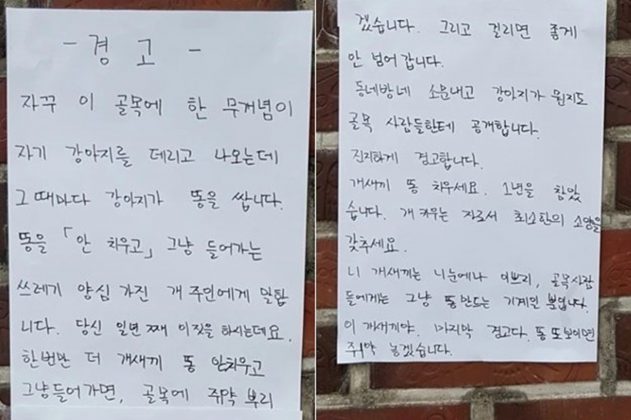 - 경 고 -
자꾸 이 골목에 한 무개념이
자기 강아지를 데리고 나오는데
그때마다 강아지가 똥을 쌉니다.
똥을 「안 치우고」 그냥 들어가는
쓰레기 양심 가진 개 주인에게 말합
니다. 당신 일년 째 이짓을 하시는데요.
한번만 더 개새끼 똥 안치우고
그냥들어가면, 골목에 쥐약 뿌리
겠습니다. 그리고 걸리면 좋게
안 넘어갑니다.
동네방네 소문내고 강아지가 뭔지도
골목 사람들한테 공개합니다.
진지하게 경고합니다.
개새끼 똥 치우세요. 1년을 참았
습니다. 개 키우는 자로서 최소한의 소양을
갖추세요.
니 개새끼는 니눈에나 이쁘지, 골목사람
들에게는 그냥 똥 만드는 기계일 뿐입니다.
이 개새끼야. 마지막 경고다. 똥 또보이면
쥐약 놓겠습니다.